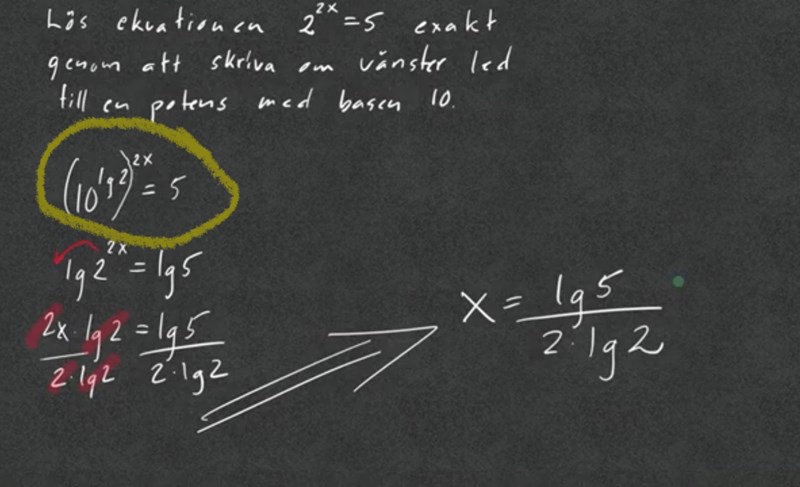 Lös ekvationen 2^2x = 5 exakt
genom att skriva om vänster led
till en potens med basen 10.
(10^lg2)^2x = 5
lg2^2x = lg5
2x·lg2/2·lg2 = lg5/2·lg2
x = lg5/2·lg2